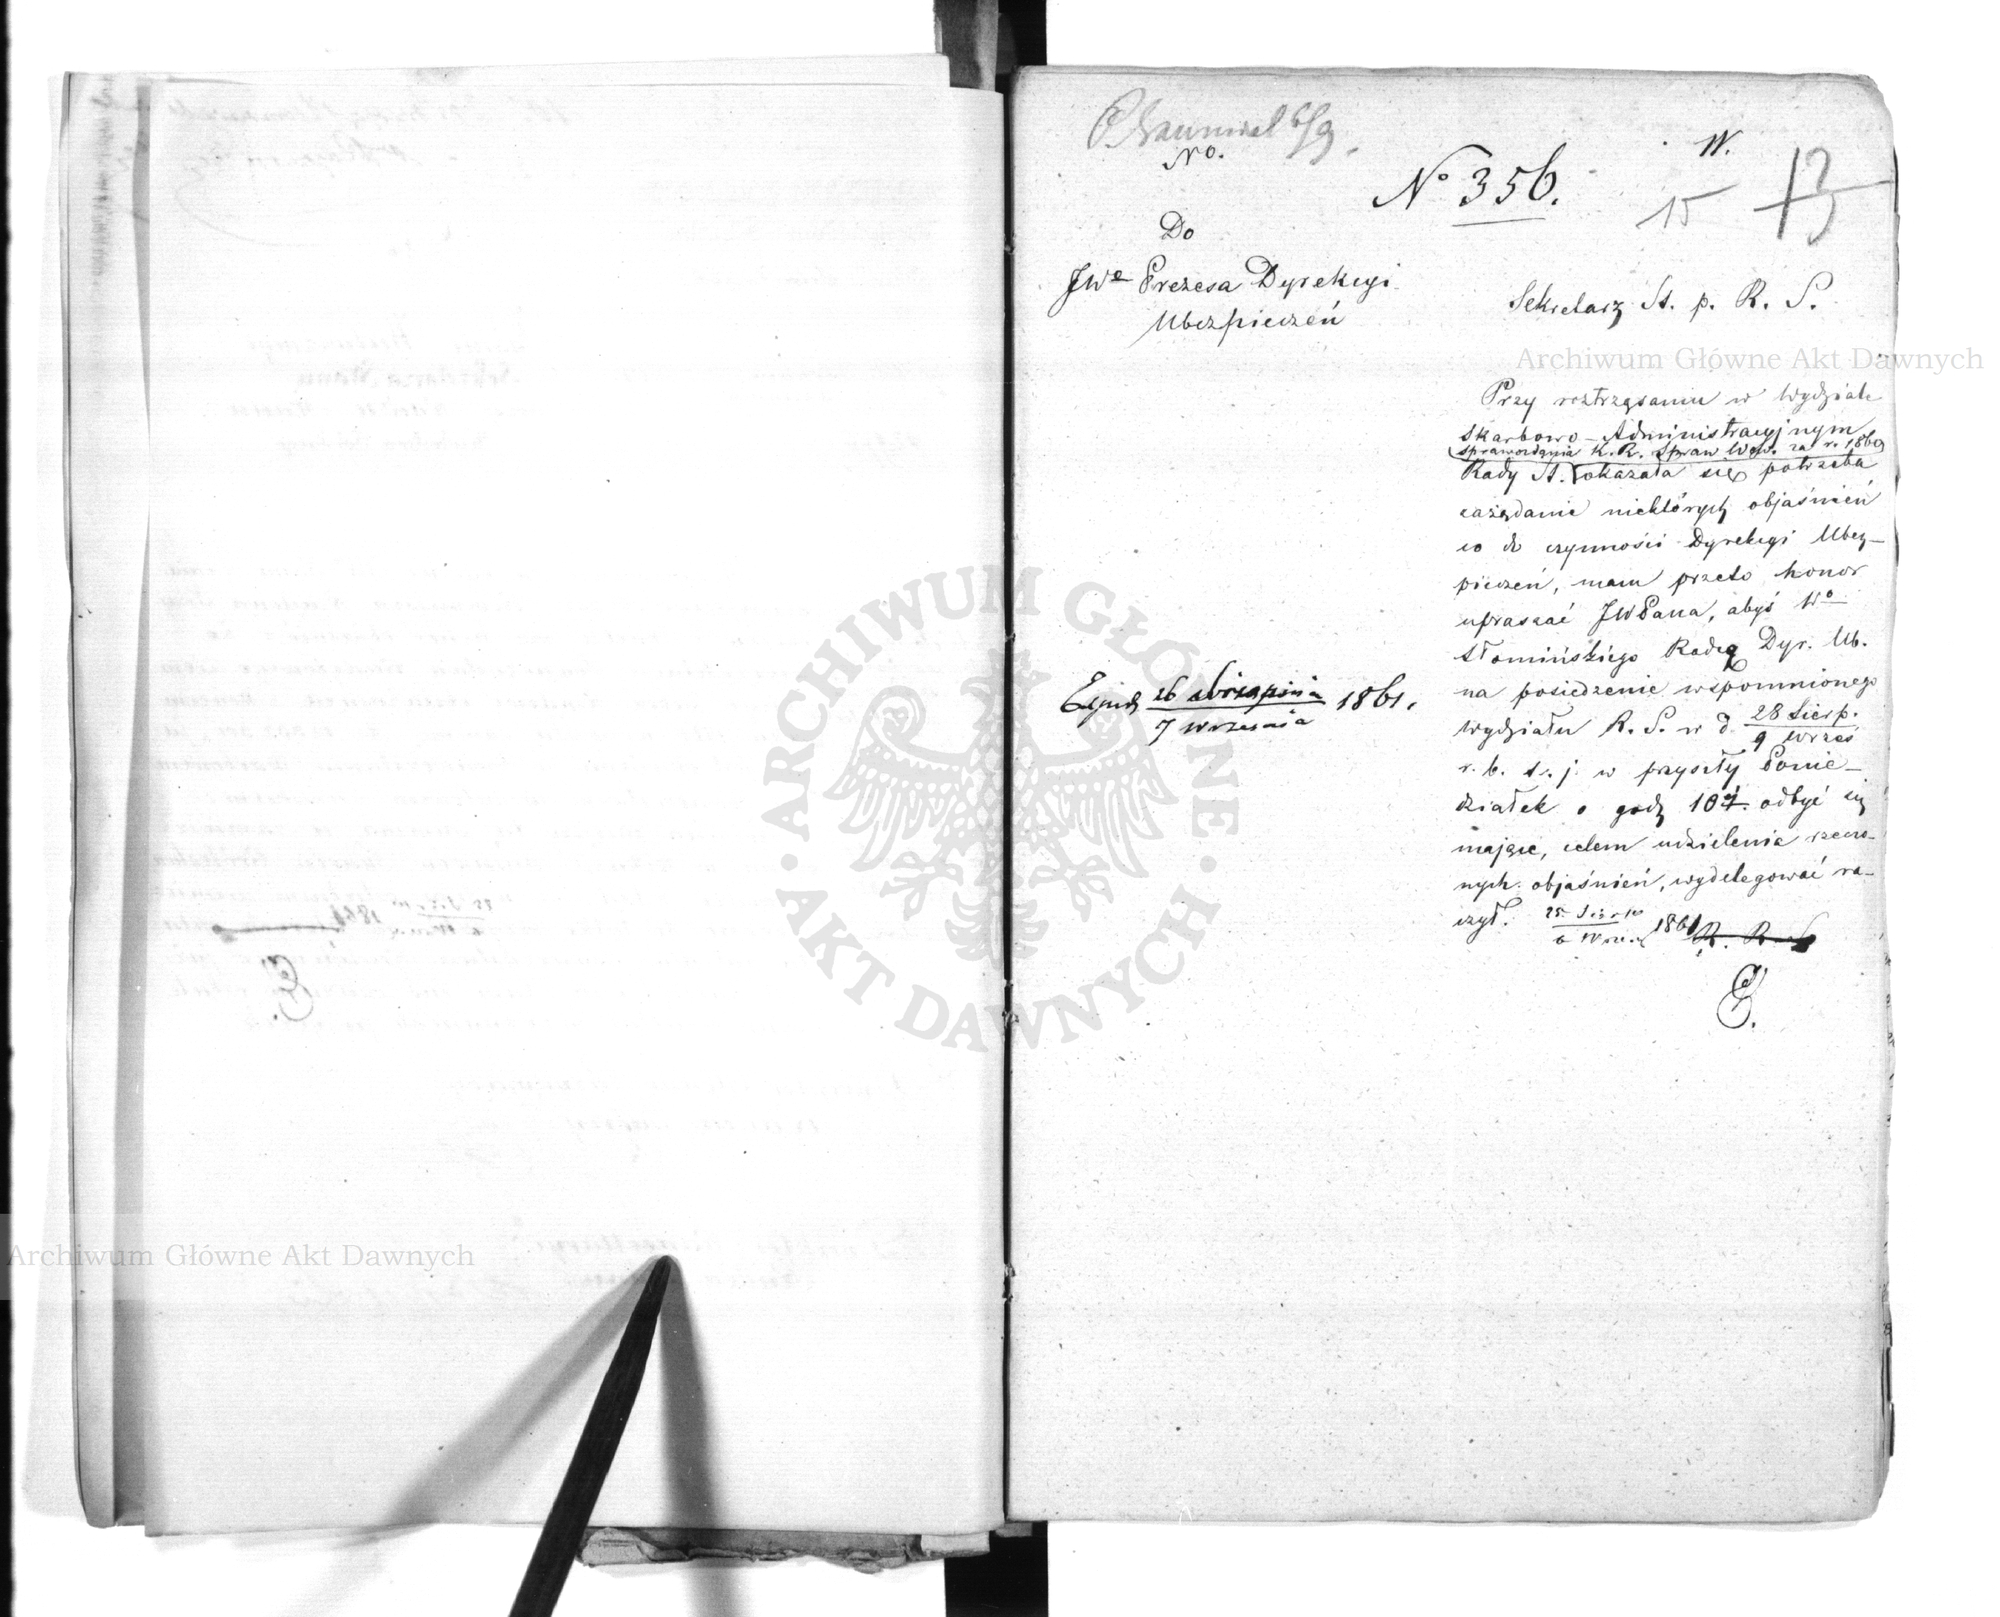 6/9.
No.
W.
N° 356.
15
13
Do
JWo Prezesa Dyrekcyi
Ubezpieczeń
Sekretarz St. p. R. S.
Przy roztrząsaniu w Wydziale
Skarbowo-Administracyjnym
sprawozdania K. R. Spraw Wew. za r. 1860
Rady St. okazała się potrzeba
zażądania niektórych objaśnień
co do czynności Dyrekcyi Ubez-
pieczeń, mam przeto honor
upraszać JWPana, abyś Wo
Słomińskiego Radcę Dyr. Ub.
na posiedzenie wspomnionego
Wydziału R. S. w d. 28 Sierp.
9 Wrześ
r. b. t. j. w przyszły Ponie-
działek o godz 10 odbyć się
mające, celem udzielenia rzeczo-
nych objaśnień, wydelegować ra-
czył.
25 Sierp
6 Wrześ 1861
26 Sierpnia
7 Września 1861.
Archiwum Główne Akt Dawnych
Archiwum Główne Akt Dawnych
ARCHIWUM GŁÓWNE · AKT DAWNYCH ·